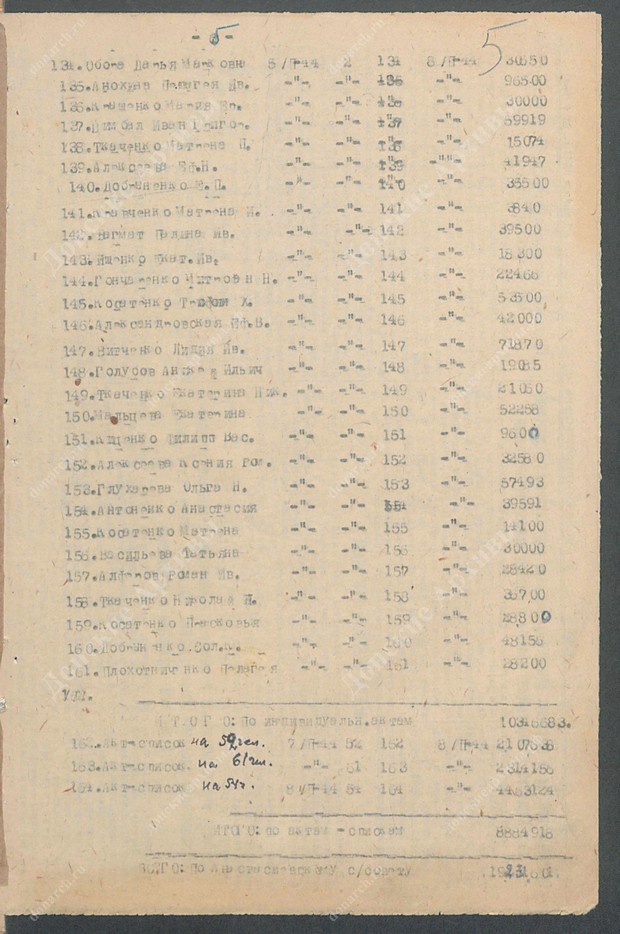 - 5 - 5
134. Обога Дарья Марковна 5/П-44 2 134 8/П-44 30550
135. Анохина Пелагея Ив. -"- -"- 135 -"- 96500
136. Мария -"- -"- 136 -"- 30000
137. Цимбал Иван Григор. -"- -"- 137 -"- 59919
138. Ткаченко Матрена П. -"- -"- 138 -"- 15074
139. Алексеева Еф.Н. -"- -"- 139 -"- 41947
140. Е.П. -"- -"- 140 -"- 36500
141. Кравченко Матрена И. -"- -"- 141 -"- 3840
142. Ив. -"- -"- 142 -"- 39500
143. Ищенко Екат.Ив. -"- -"- 143 -"- 18300
144. Гончаренко Митрофан Н. -"- -"- 144 -"- 22466
145. Косатенко Х. -"- -"- 145 -"- 53500
146. Александровская Еф.В. -"- -"- 146 -"- 42000
147. Витченко Лидия Ив. -"- -"- 147 -"- 71870
148. Голубов Ильич -"- -"- 148 -"- 19085
149. Ткаченко Екатерина Ник. -"- -"- 149 -"- 21050
150. Мальцева Екатерина -"- -"- 150 -"- 52258
151. Кищенко Филипп Вас. -"- -"- 151 -"- 9600
152. Алексеева Ксения Ром. -"- -"- 152 -"- 32580
153. Глухарева Ольга Н. -"- -"- 153 -"- 57493
154. Антоненко Анастасия -"- -"- 154 -"- 39591
155. Косатенко Матрена -"- -"- 155 -"- 14100
156. Васильева Татьяна -"- -"- 156 -"- 30000
157. Алферов Роман Ив. -"- -"- 157 -"- 28420
158. Ткаченко Николай П. -"- -"- 158 -"- 35700
159. Косатенко Прасковья -"- -"- 159 -"- 28800
160. -"- -"- 160 -"- 48156
161. Плохотниченко Пелагея -"- -"- 161 -"- 28200
И Т О Г О: По индивидуальн.актам 10346683.
162. Акт-список на 52 чел. 7/П-44 52 162 8/П-44 2107638
163. Акт-список. на 61 чел. -"- 61 163 -"- 2314156
164. Акт-список на 54 ч. 8/П-44 54 164 -"- 4463124
ИТОГО: по актам - спискам 8884918
ВСЕГО: По с/совету